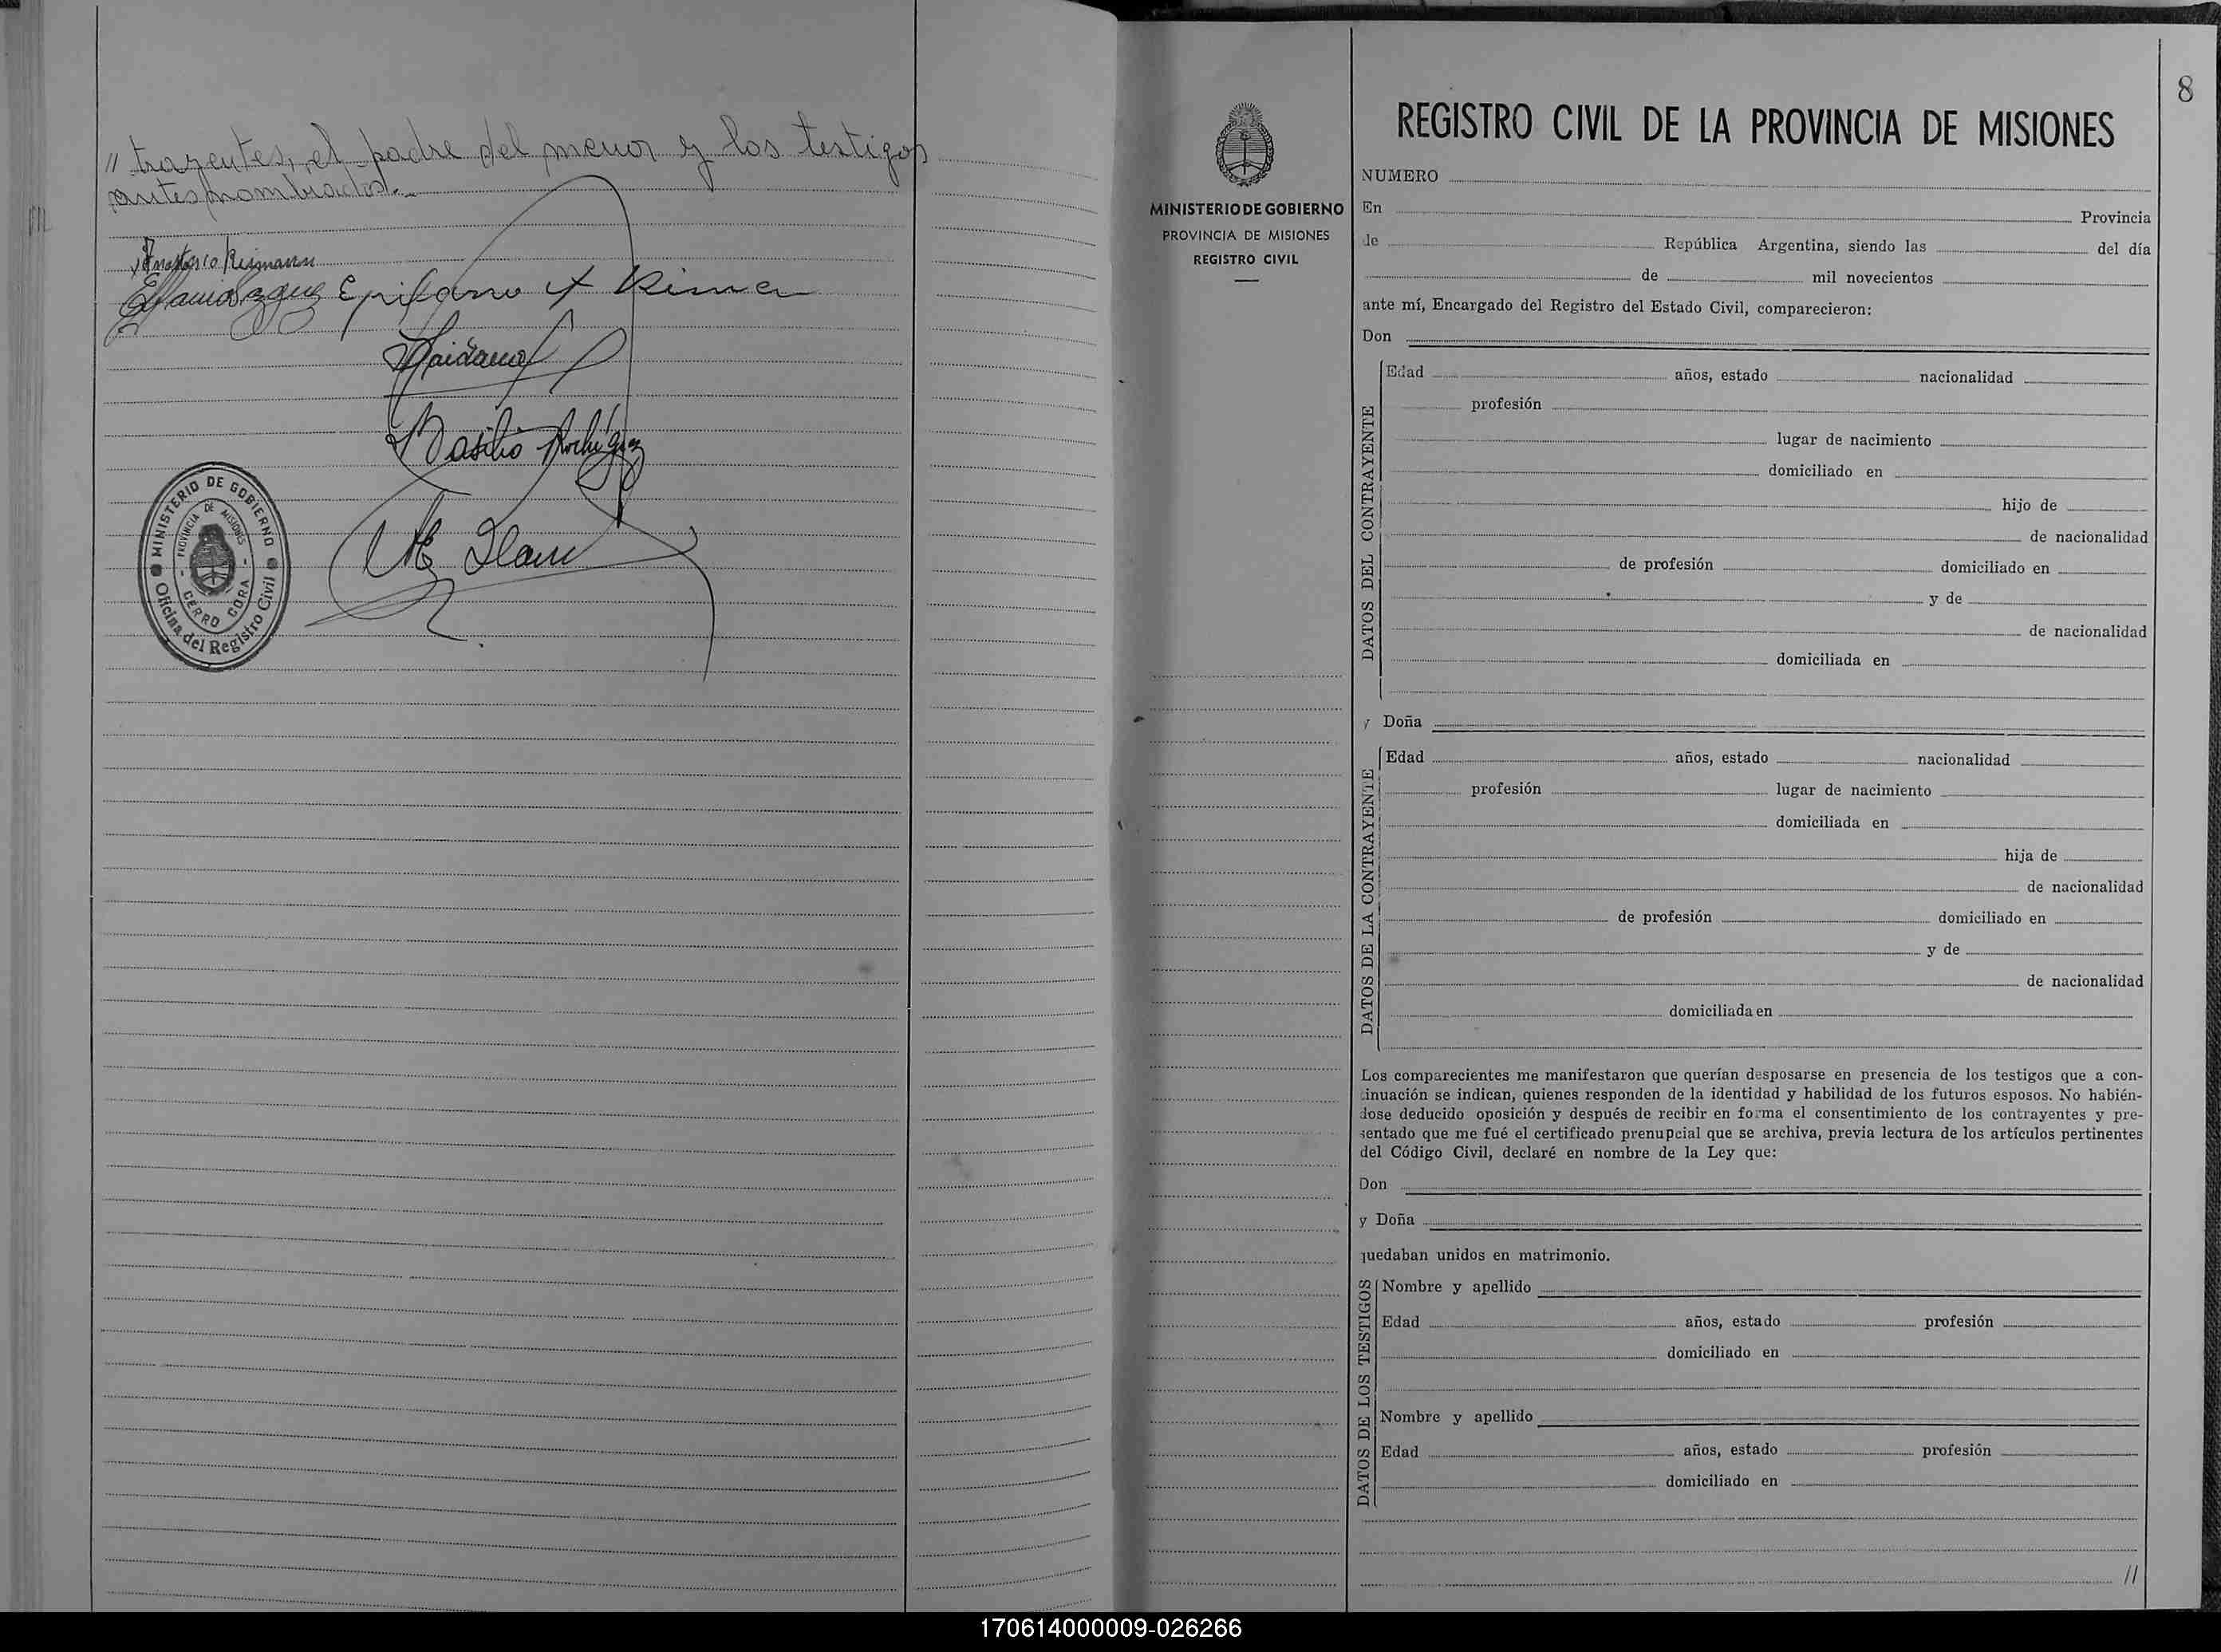 // trayentes, el padre del menor y los testigos
antes nombrados.-
Epifanio
Basilio Rodríguez
MINISTERIO DE GOBIERNO
PROVINCIA DE MISIONES
CERRO CORA
Oficina del Registro Civil
8
MINISTERIO DE GOBIERNO
PROVINCIA DE MISIONES
REGISTRO CIVIL
REGISTRO CIVIL DE LA PROVINCIA DE MISIONES
NUMERO
En Provincia
de República Argentina, siendo las del día
de mil novecientos
ante mí, Encargado del Registro del Estado Civil, comparecieron:
Don
DATOS DEL CONTRAYENTE
Edad años, estado nacionalidad
profesión
lugar de nacimiento
domiciliado en
hijo de
de nacionalidad
de profesión domiciliado en
y de
de nacionalidad
domiciliada en
y Doña
DATOS DE LA CONTRAYENTE
Edad años, estado nacionalidad
profesión lugar de nacimiento
domiciliada en
hija de
de nacionalidad
de profesión domiciliado en
y de
de nacionalidad
domiciliada en
Los comparecientes me manifestaron que querían desposarse en presencia de los testigos que a con-
tinuación se indican, quienes responden de la identidad y habilidad de los futuros esposos. No habién-
dose deducido oposición y después de recibir en forma el consentimiento de los contrayentes y pre-
sentado que me fué el certificado prenupcial que se archiva, previa lectura de los artículos pertinentes
del Código Civil, declaré en nombre de la Ley que:
Don
y Doña
quedaban unidos en matrimonio.
DATOS DE LOS TESTIGOS
Nombre y apellido
Edad años, estado profesión
domiciliado en
Nombre y apellido
Edad años, estado profesión
domiciliado en
//
170614000009-026266